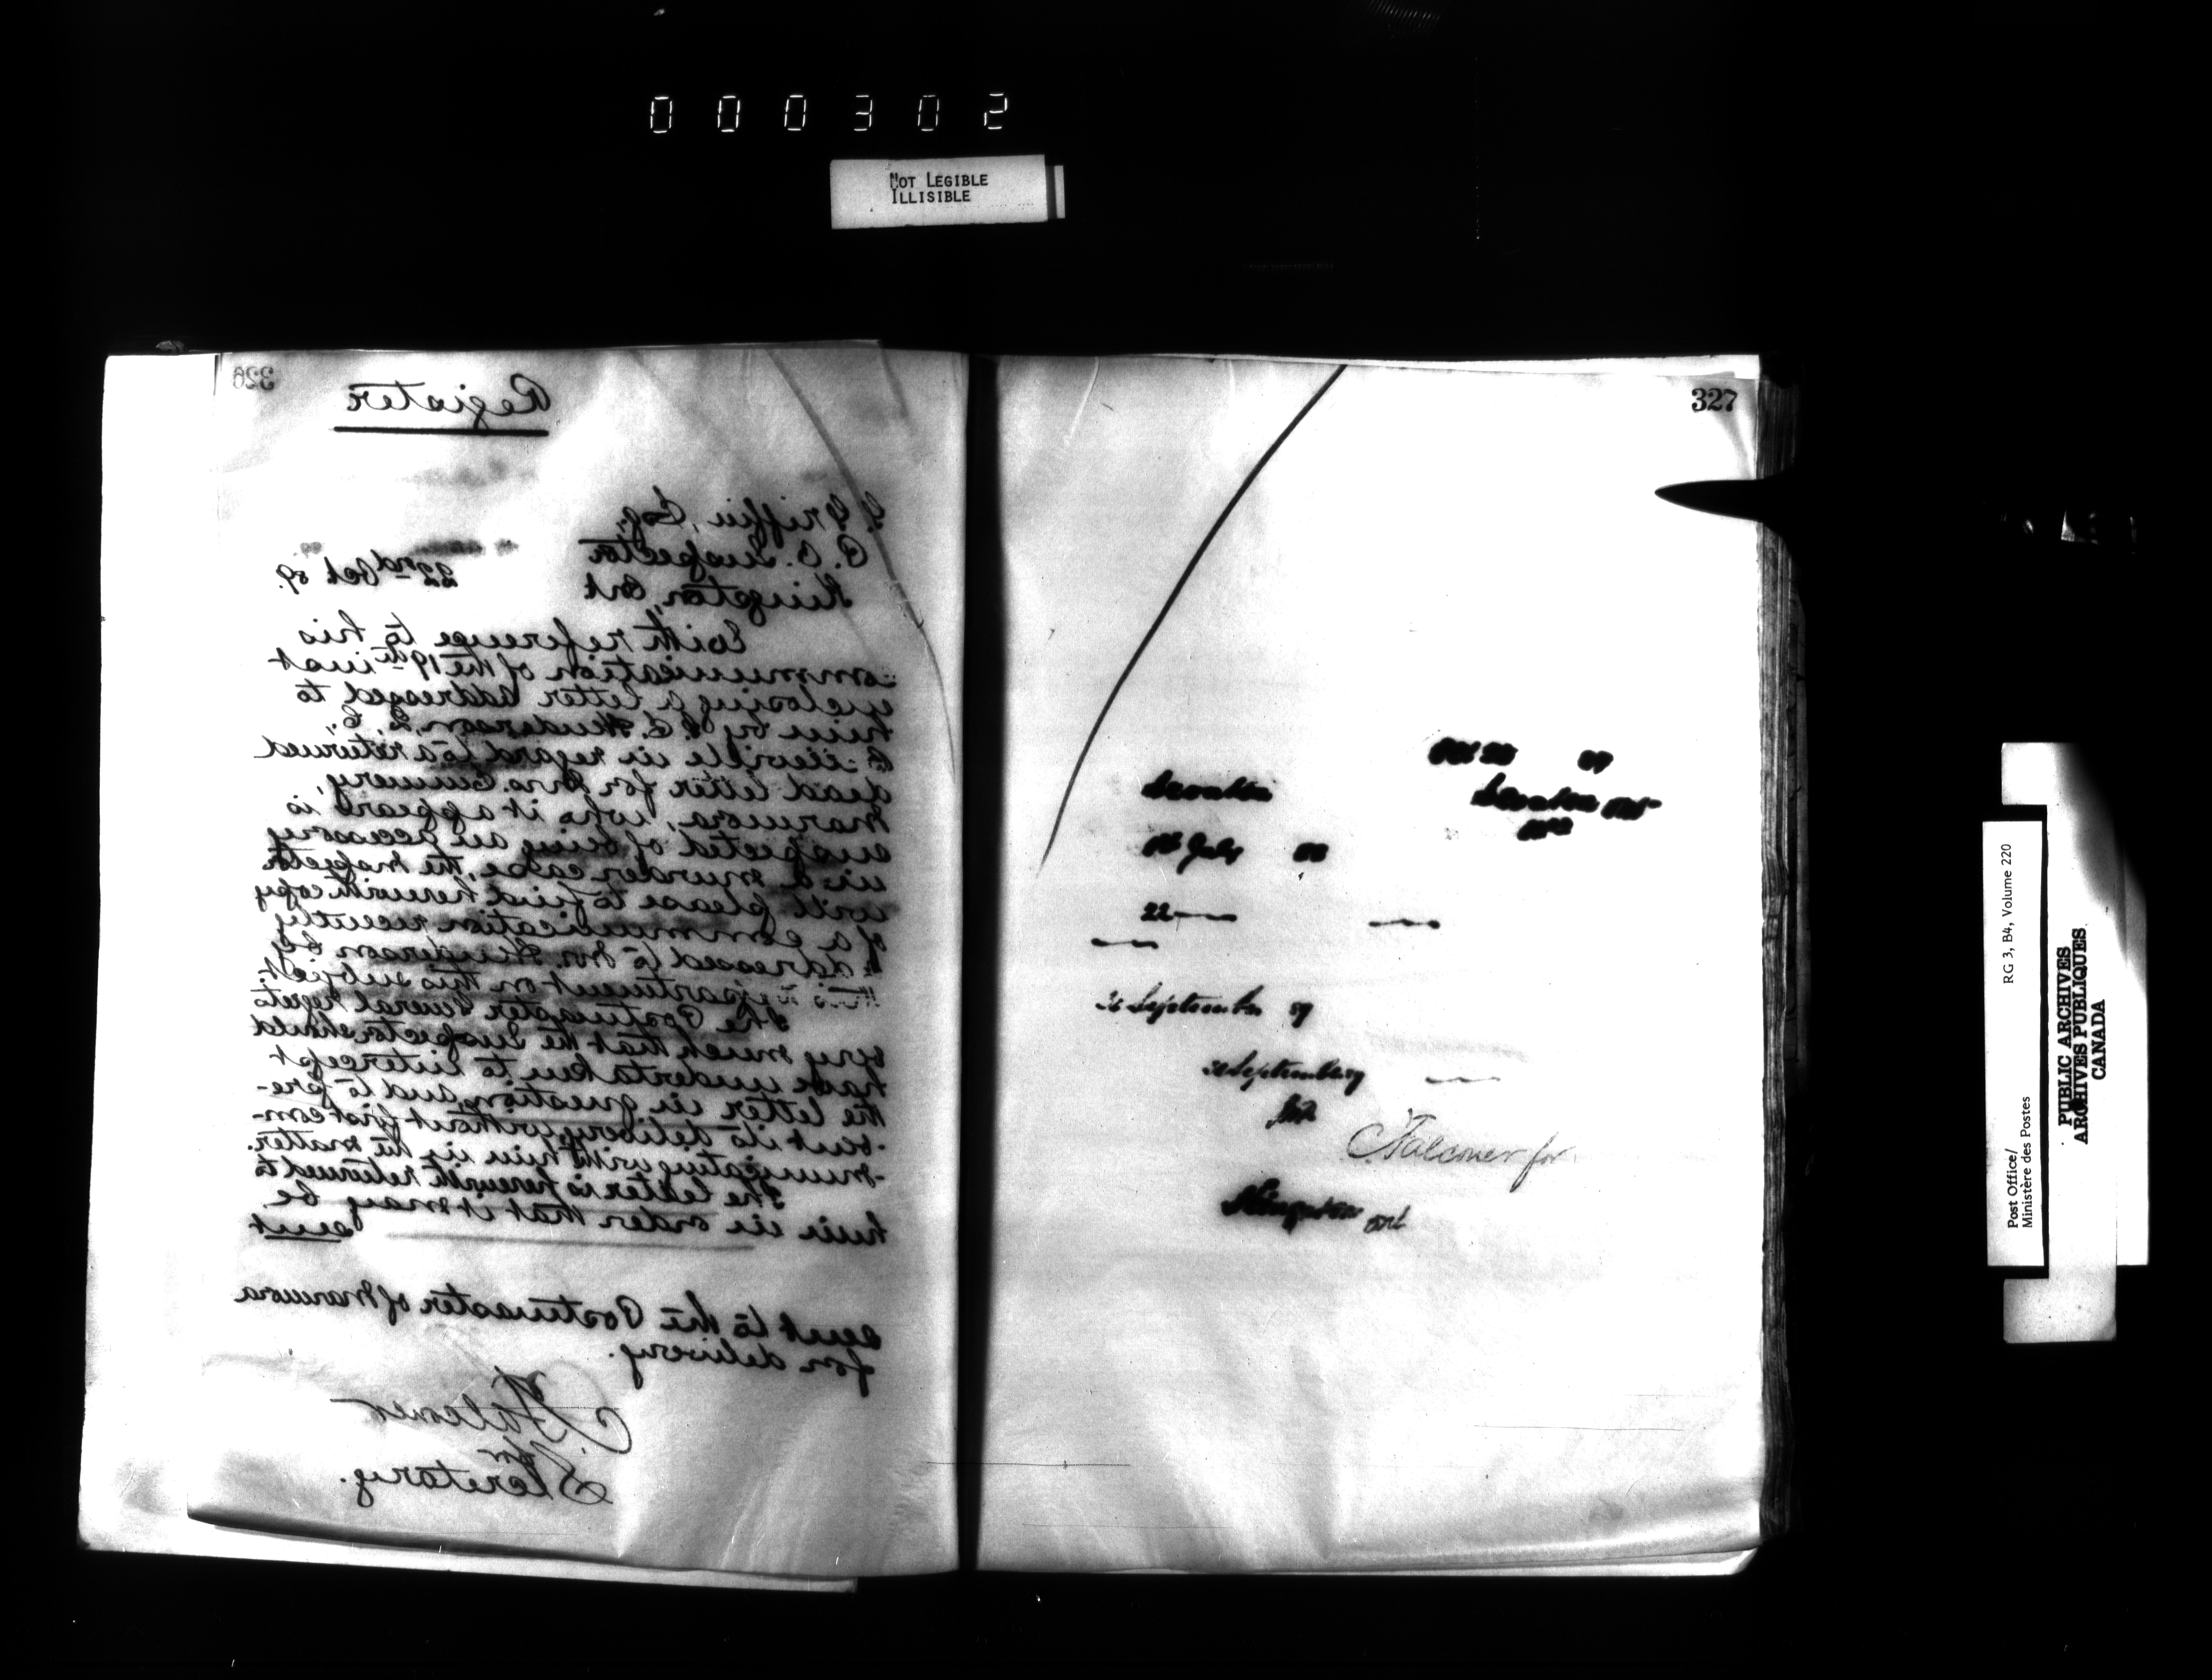 000302
NOT LEGIBLE
ILLISIBLE
326
Register
G. Griffin, Esq,
P. O. Inspector
Kingston, Ont
22nd Oct 89.
With reference to his
communication of the 19th inst
enclosing a letter addressed to
him by Henderson, Q. C.
in regard to a returned
dead letter for Mrs.
Marmora, who it appears is
suspected of being an accessory
in a murder case, the Inspector
will please to find herewith copy
of a communication recently
addressed to Mr. Henderson by
this Department on this subject.
The Postmaster General regrets
very much that the Inspector should
have undertaken to intercept
the letter in question, and to pre-
vent its delivery, without first com-
municating with him in the matter.
The letter is herewith returned to
him in order that it may be
sent
sent to the Postmaster of Marmora
for delivery.
Falconer
for
Secretary.
327
Oct 89
Ont
July 88
22
September 89
September
Falconer for
Kingston Ont
RG 3, B4, Volume 220
Post Office/
Ministère des Postes
PUBLIC ARCHIVES
ARCHIVES PUBLIQUES
CANADA